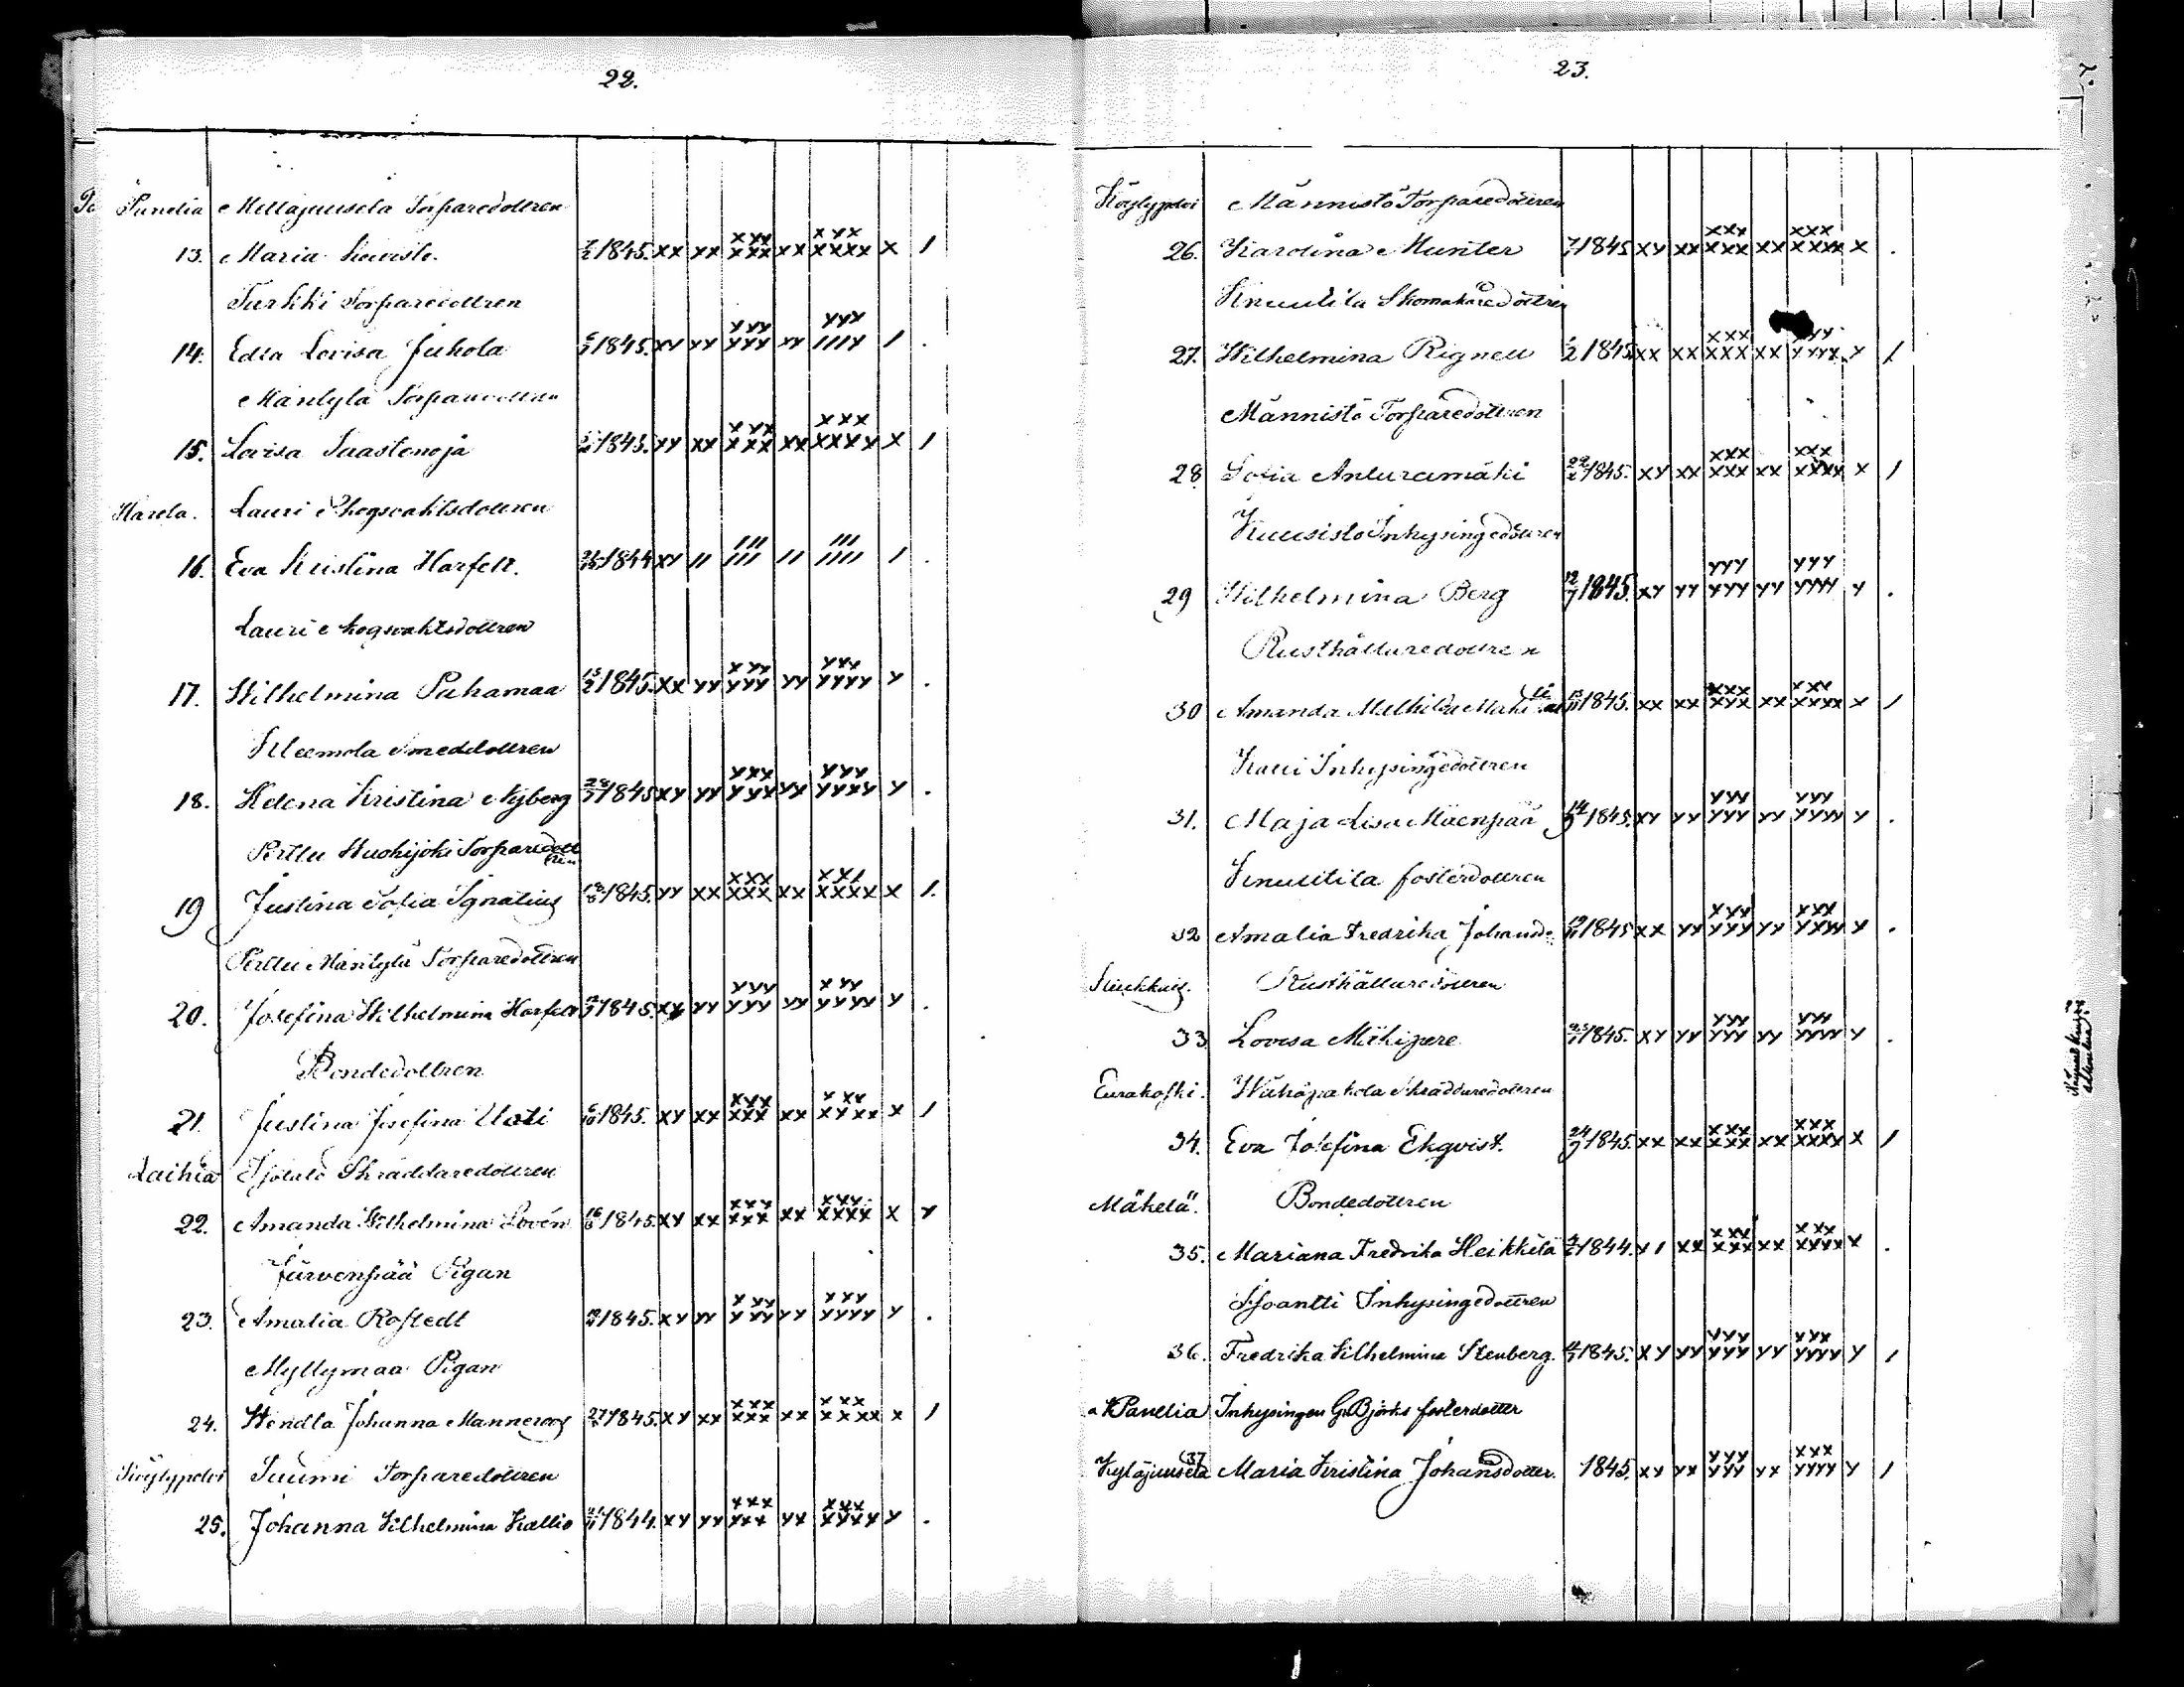 22.
Panelia Mellajuusela Torparedottren
13. Maria 1845. xx xx xxx xxx xx xxx xxxx x /
Turkki Torparedottren
14. Edla Lovisa Juhola 1845. xy yy yyy yyy yy yyy ///y / .
Mäntylä Torparedottren
15. Lovisa Saastenoja 1845. yy xx xxx xxx xx xxx xxxx x /
Lauri Skogvaktsdottren
16. Eva Kristina Harfelt. 1844 xy // /// /// // /// //// / .
Lauri Skogvaktsdottren
17. Wilhelmina Pahamaa 1845. xx yy xyy yyy yy yyy yyyy y .
Kleemola Smeddottren
18. Helena Kristina Nyberg 1845 xy yy yxx yyx yy yyy yyxy y .
Perttu Huohijoki Torparedottren
19 Justina Sofia Ignatius 1845. yy xx xxx xxx xx xx/ xxxx x /.
Perttu Mäntylä Torparedottren
20. Josefina Wilhelmina 1845. xy yy yyy yyy yy xyy yyyy y .
Bondedottren
21. Justina Josefina Uoti 1845. xy xx xxx xxx xx xxx xxxx x /
Laihia Skräddaredottren
22. Amanda Wilhelmina Lovén 1845. xy xx xxx xxx xx xxx xxxx x y
Järvenpää Pigan
23. Amalia Rostedt 1845. xy yy yyy yyy yy yyy yyyy y .
Myllymaa Pigan
24. Wendla Johanna 1845. xy xx xxx xxx xx xxx xxxx x /
Köylypolvi Suumi Torparedottren
25. Johanna Wilhelmina Kallio 1844. xy yy xxx yxx yy xxx xyxy y .
23.
Köylypolvi Männistö Torparedottren
26. Karolina Munter 1845 xy xx xxx xxx xx xxx xxxx x .
Knuutila Skomakaredottren
27. Wilhelmina Rignell 1845 xx xx xxx xxx xx yyxx y /
Männistö Torparedottren
28 Sofia Anturamäki 1845. xy xx xxx xxx xx xxx xxxx x /
Kuusisto Inhysingedottren
29 Wilhelmina Berg 12/7 1845. xy yy yyy xyy yy yyy yyyy y .
Rusthållaredottren
30 Amanda Mathilda 1845. xx xx xxx xyx xx xxx xxxx x /
Inhysingedottren
31. Maja Lisa Mäenpää 14/9 1845. xy yy yyy yyy yy yyy yyyy y .
Knuutila fosterdottren
32 Amalia Fredrika Johansd. 1845 xx yy xyy yyy yy xxx yxyy y .
Rusthållaredottren
33 Lovisa Mikipere 1845. xy yy yyy yyy yy yyy yyyy y .
Eurakoski. Skräddaredottren
34. Eva Josefina Ekqvist. 24/9 1845. xx xx xxx xxx xx xxx xxxx x /
Mäkelä. Bondedottren
35. Mariana Fredrika Heikkilä 1844. y/ xx xxx xxx xx xxx xxxx x .
Inhysingedottren
36. Fredrika Wilhelmina Stenberg. 1845. xy yy yyy yyy yy yyx yyyy y /
Panelia Inhysingen G. Björks fosterdotter
37 Kyläjuusela Maria Kristina Johansdotter. 1845. xy yx yyy yyy yx xxx yyyy y /